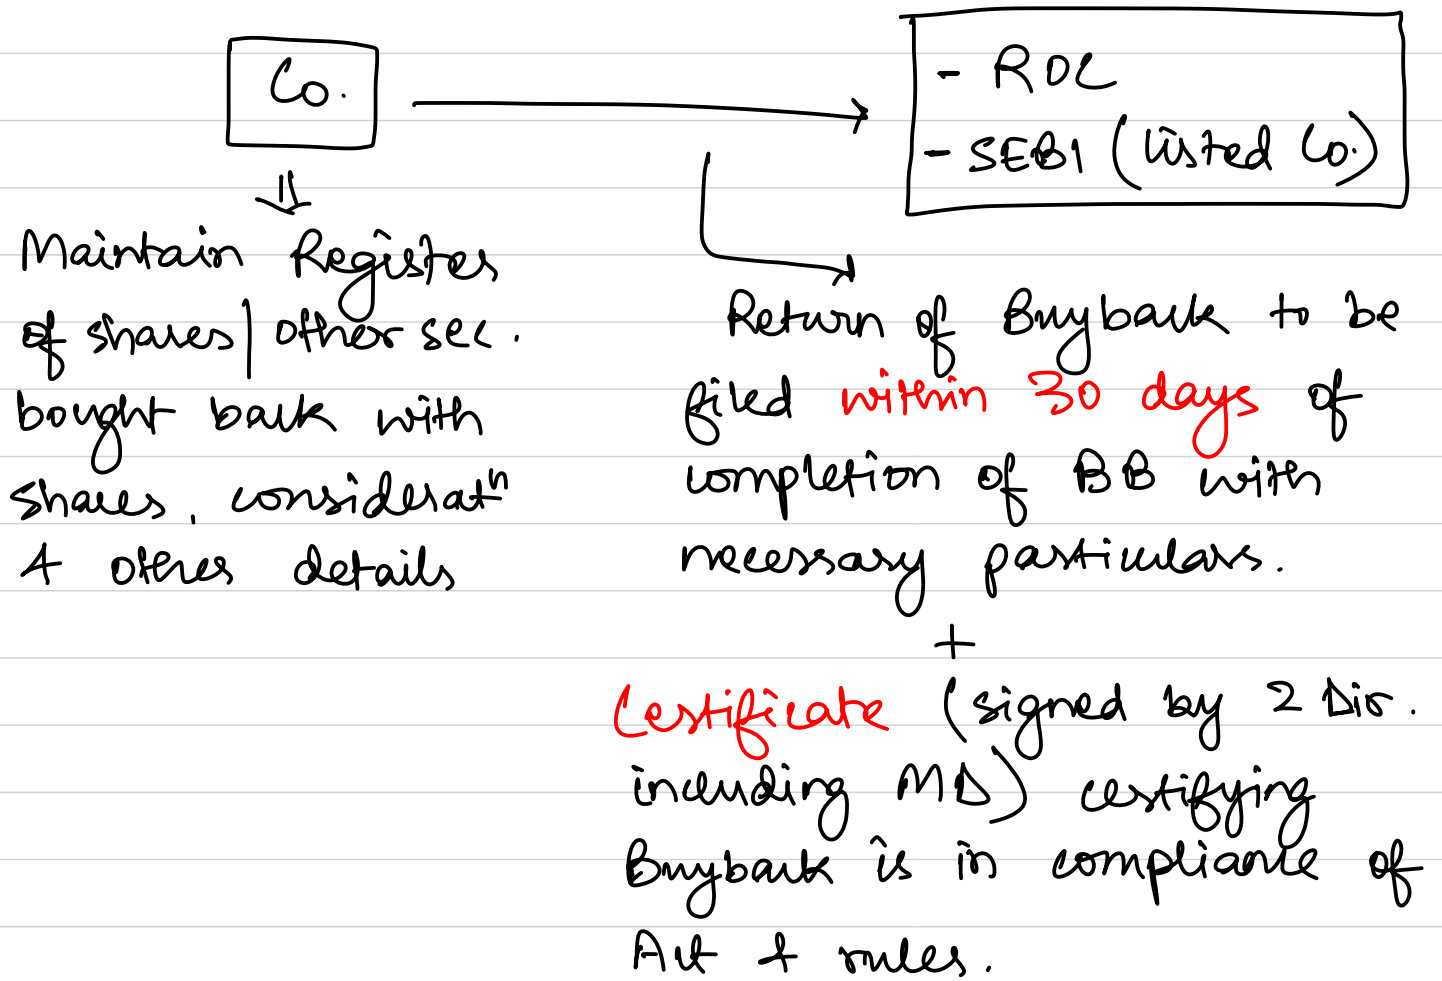 Co.
- ROC
- SEBI (listed Co.)
Maintain Register
of shares/other sec.
bought back with
shares, consideratn
& other details
Return of Buyback to be
filed within 30 days of
completion of BB with
necessary particulars.
+
Certificate (signed by 2 Dir.
including MD) certifying
Buyback is in compliance of
Act & rules.